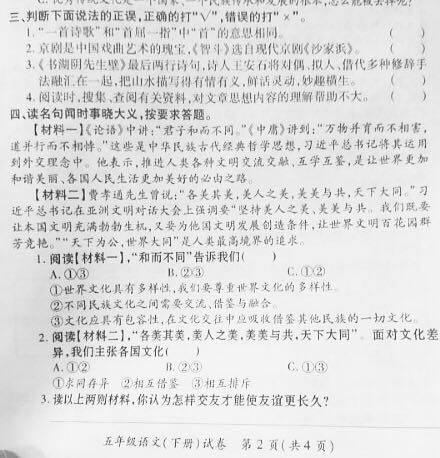 三、判断下面说法的正误,正确的打"√",错误的打"×"。
1."一首诗歌"和"首届一指"中"首"的意思相同。 ( )
2.京剧是中国戏曲艺术的瑰宝,《智斗》选自现代京剧《沙家浜》。 ( )
3.《书湖阴先生壁》最后两行诗句,诗人王安石将对偶、拟人、借代多种修辞手
法融汇在一起,把山水描写得有情有义,鲜活灵动,妙趣横生。 ( )
4.阅读时,搜集、查阅有关资料,对文章思想内容的理解帮助不大。 ( )
四、读名句闻时事晓大义,按要求答题。
【材料一】《论语》中讲:"君子和而不同。"《中庸》讲到:"万物并育而不相害,
道并行而不相悖。"这些是中华民族古代经典哲学思想,习近平总书记将其运用
到外交理念中。他表示,推进人类各种文明交流交融、互学互鉴,是让世界更加
和谐美丽、各国人民生活更加美好的必由之路。
【材料二】费孝通先生曾说:"各美其美,美人之美,美美与共,天下大同。"习
近平总书记在亚洲文明对话大会上强调要"坚持美人之美、美美与共。我们既要
让本国文明充满勃勃生机,又要为他国文明发展创造条件,让世界文明百花园群
芳竞艳。""天下为公,世界大同"是人类最高境界的追求。
1.阅读【材料一】,"和而不同"告诉我们( )
A.①③ B.②③ C.①②
①世界文化具有多样性,我们要尊重世界文化的多样性。
②不同民族文化之间需要交流、借鉴与融合。
③文化应具有包容性,在文化交往中应吸收借鉴其他民族的一切文化。
2.阅读【材料二】,"各美其美,美人之美,美美与共,天下大同"。面对文化差
异,我们主张各国文化( )
A.①② B.②③ C.①③
①求同存异 ②相互借鉴 ③相互排斥
3.读以上两则材料,你认为怎样交友才能使友谊更长久?
五年级语文(下册)试卷 第2页(共4页)